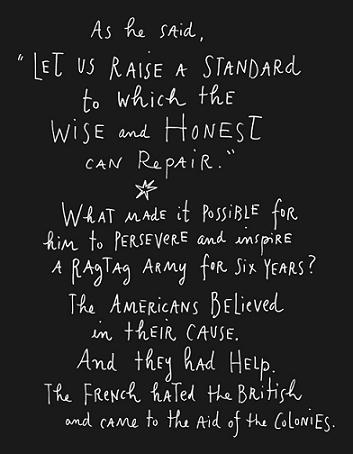 As he SAID,
"LET US RAISE A STANDARD
to which the
WISE and HONEST
CAN REPAIR."
WHAT MADE it POSSIBLE FOR
him to PERSEVERE and inspiRE
A RAGTAG ARMY FOR Six YEARS?
The AMERICANS BELieved
in THEIR CAUSE.
And they had HELP.
The FRENCH hATED the BRitish
and CAME to the Aid of the COLONIES.